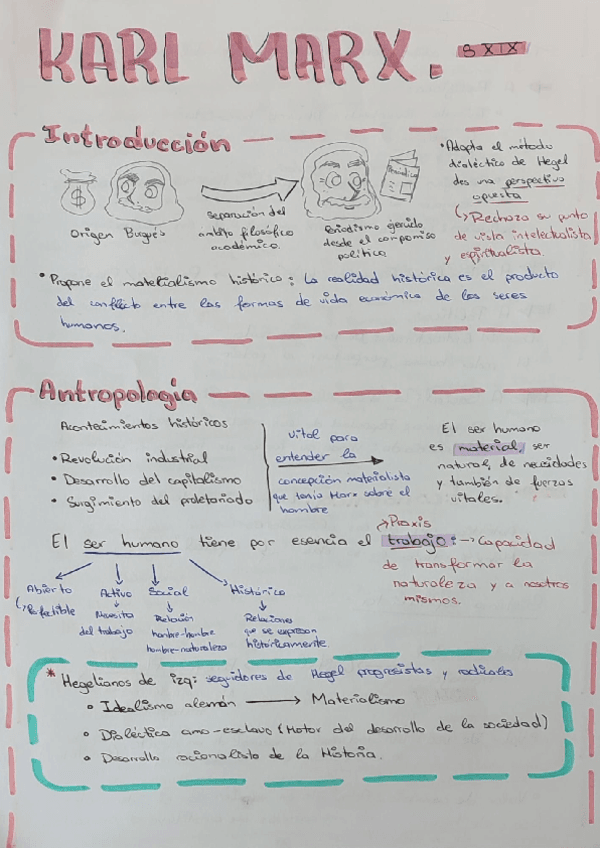 KARL MARX. S XIX
Introducción
Origen Burgués
Separación del
ambito filosófico
académico.
Periodismo ejercido
desde el compromiso
político
• Adopta el método
dialéctico de Hegel
des una perspectiva
opuesta
↳ Rechaza su punto
de vista intelectualista
y espiritualista.
• Propone el materialismo histórico: La realidad histórica es el producto
del conflicto entre las formas de vida económica de los seres
humanos.
Antropología
Acontecimientos históricos
• Revolución industrial
• Desarrollo del capitalismo
• Surgimiento del proletariado
vital para
entender la
concepción materialista
que tenía Marx sobre el
hombre
El ser humano
es material, ser
natural, de necesidades
y también de fuerzas
vitales.
El ser humano tiene por esencia el trabajo:
→ Praxis
→ Capacidad
de transformar la
naturaleza y a nosotros
mismos.
Abierto
↳ Perfectible
Activo
Necesita
del trabajo
Social
Relación
hombre-hombre
hombre-naturaleza
Histórico
Relaciones
que se expresan
históricamente.
* Hegelianos de izq: seguidores de Hegel progresistas y radicales
• Idealismo alemán → Materialismo
• Dialéctica amo-esclavo (Motor del desarrollo de la sociedad)
• Desarrollo racionalista de la Historia.